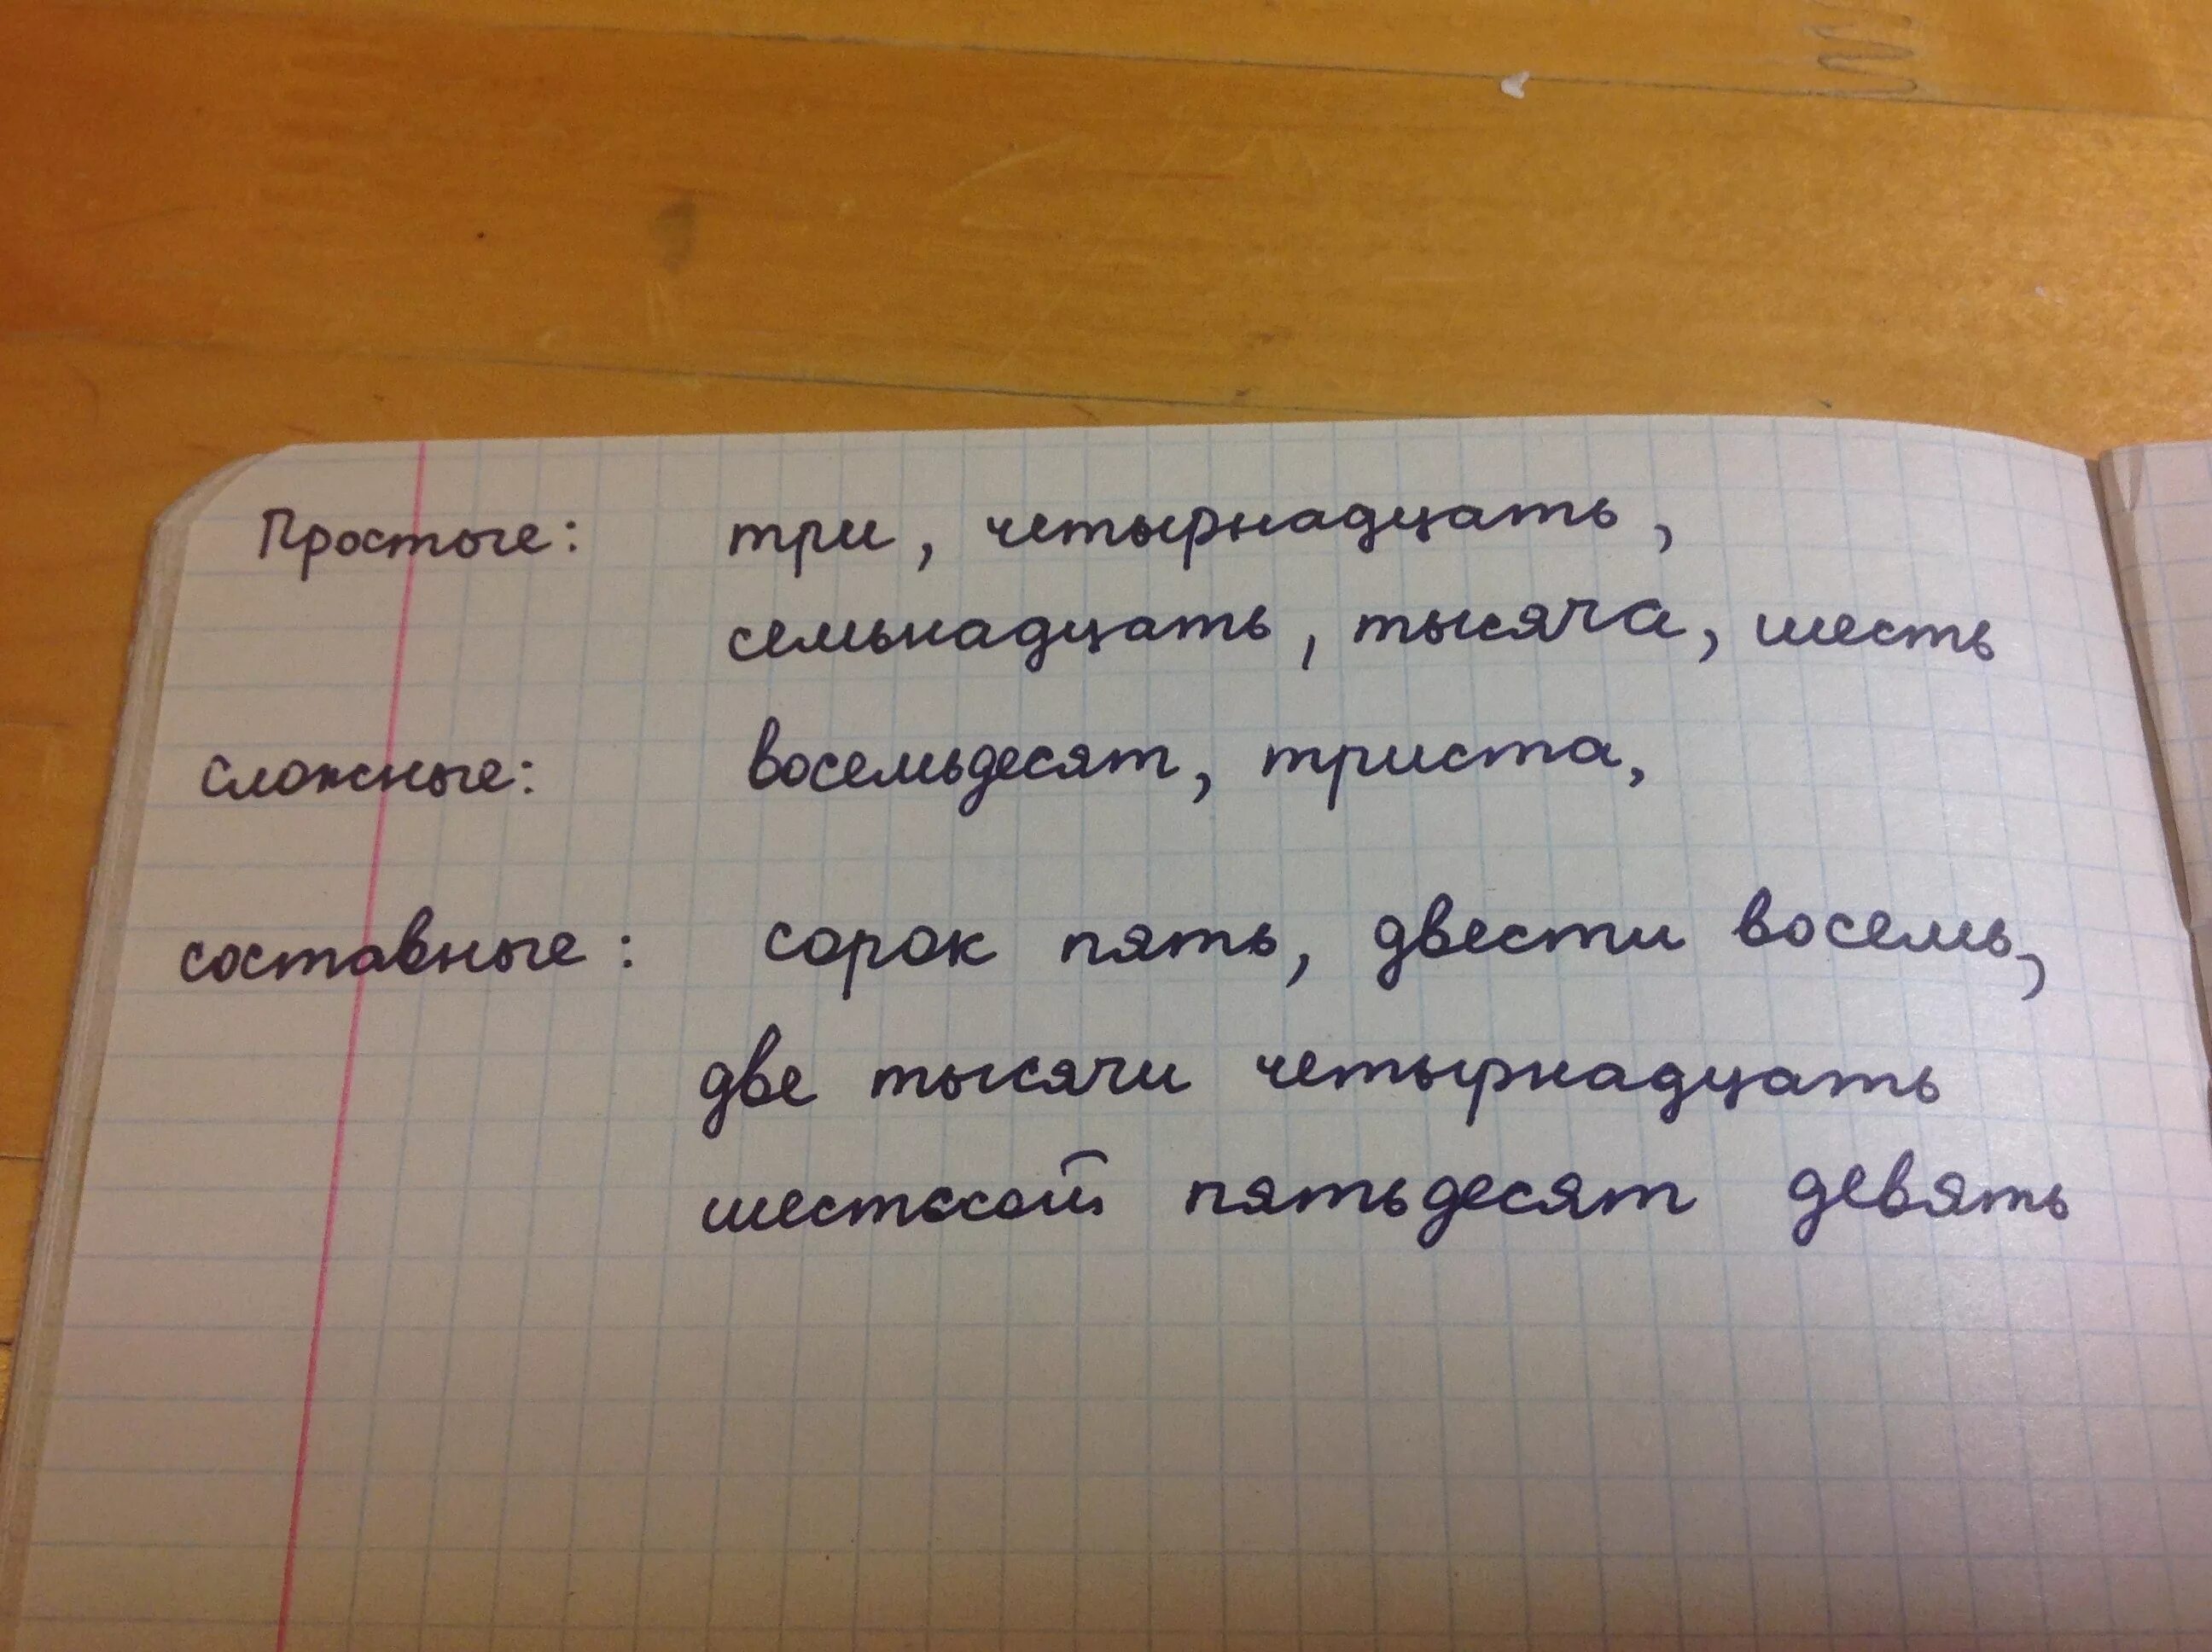 Простые: три, четырнадцать,
семьнадцать, тысяча, шесть
сложные: восемьдесят, триста,
составные: сорок пять, двести восемь,
две тысячи четырнадцать
шестьсот пятьдесят девять